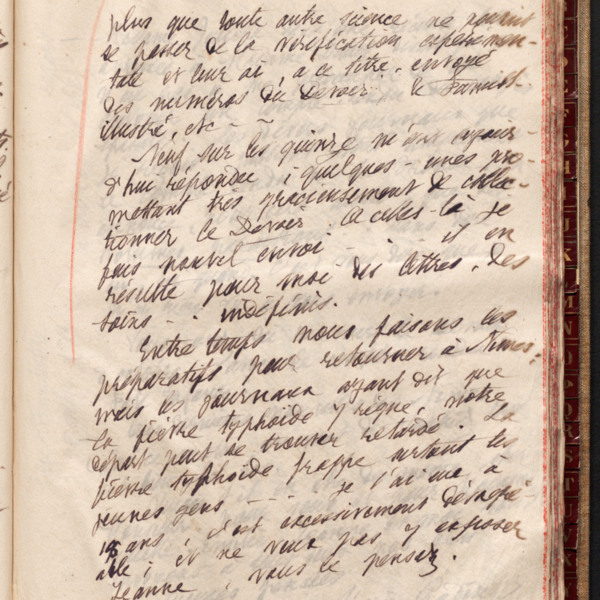 plus que toute autre science ne peuvent
se passer de la vérification expérimen-
tale et leur ai, à ce titre, envoyé
des numéros du Devoir le Familist.
illustré, etc - -
Neuf sur les quinze m'ont aujour-
d'hui répondu ; quelques-unes pro-
mettant très gracieusement de collec-
tionner le Devoir. A celles-là je
fais nouvel envoi - . - . il en
résulte pour moi des lettres, des
soins - . indéfinis.
Entre temps nous faisons les
préparatifs pour retourner à Nimes;
mais les journaux ayant dit que
la fièvre typhoïde y règne, notre
départ peut se trouver retardé. La
fièvre typhoïde frappe surtout les
jeunes gens - - - je l'ai eue à
18 ans ; c'est excessivement désagré-
able ; et ne veux pas y exposer
Jeanne, vous le pensez.